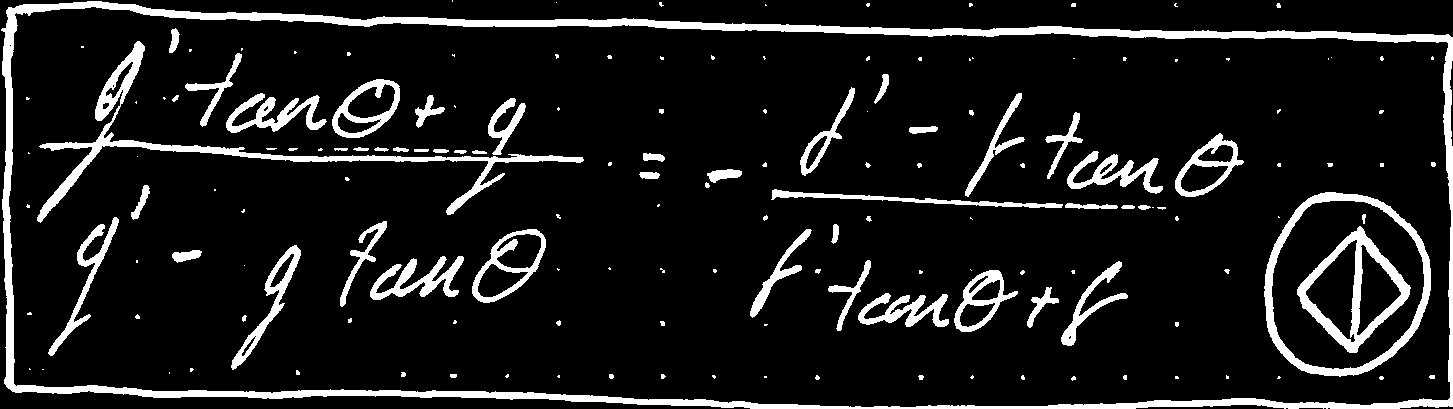 (g' tanθ + g) / (g' - g tanθ) = - (f' - f tanθ) / (f' tanθ + f)